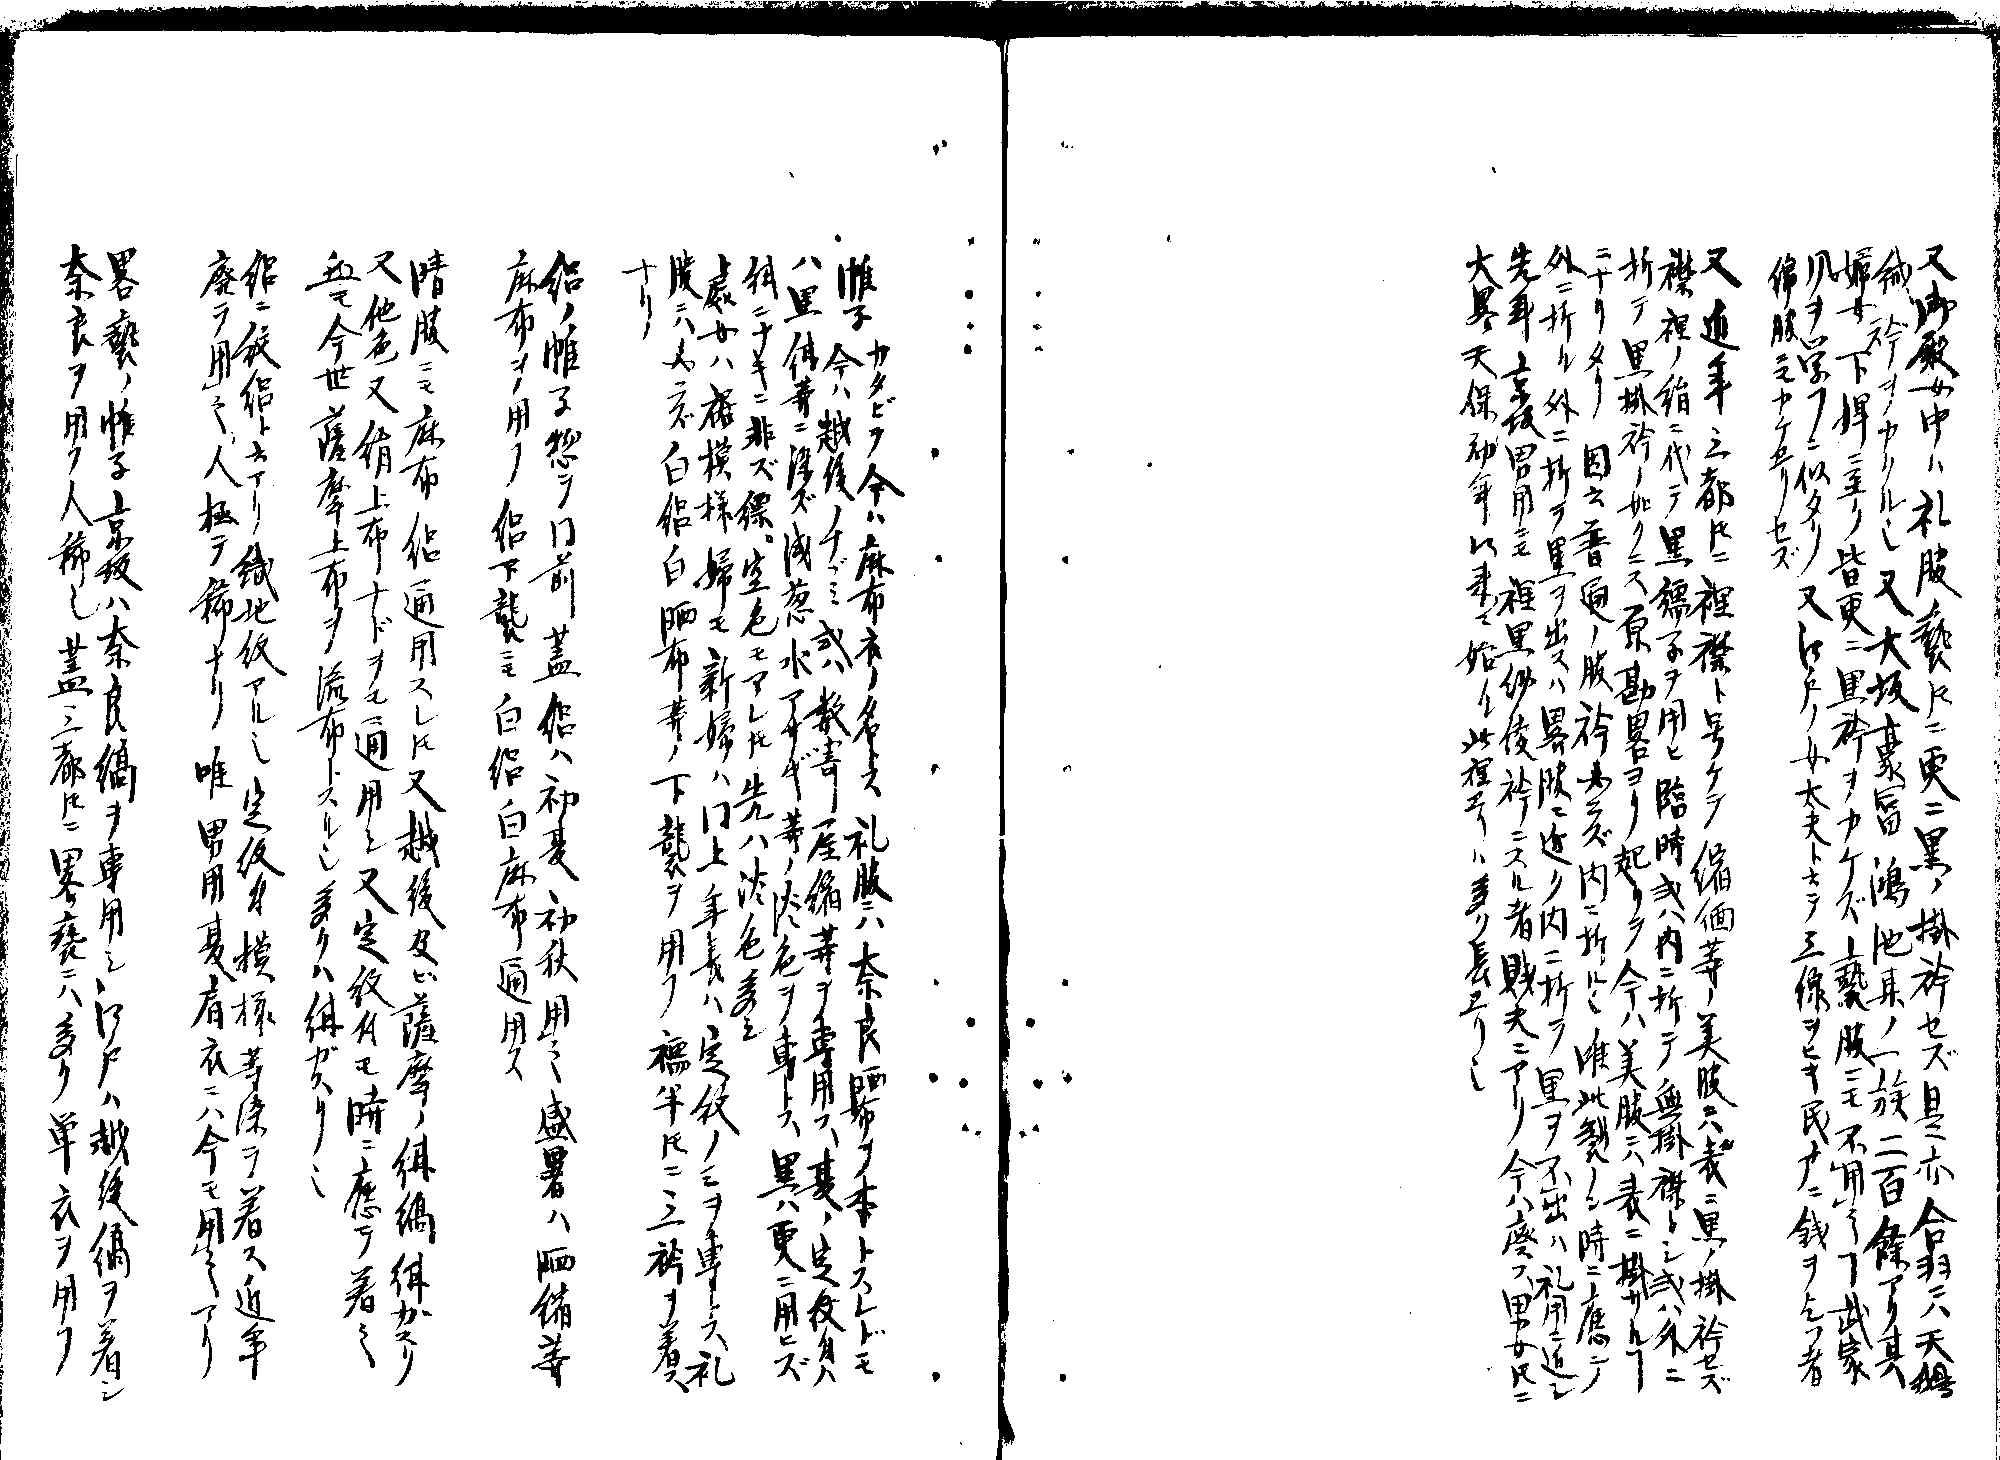 又御殿女中ハ礼服褻トモニ更ニ黒ノ掛衿セズ是亦合羽ニハ天鵞
絨衿ヲカクル也又大坂豪富鴻池某ノ一族二百餘アリ其
婦女下婢ニ至リ皆更ニ黒衿ヲカケズ上褻服ニモ不用之丁武家
風ヲ学フニ似タリ又江戸ノ女太夫ト云テ三線ヲヒキ民戸ニ銭ヲ乞フ者
綿服ニモカケエリセズ
又近年三都トモニ裡襟ト号ケテ縮緬等ノ美服ニハ表ニ黒ノ掛衿セズ
襟裡ノ絹ニ代テ黒繻子ヲ用ヒ臨時或ハ内ニ折テ無掛襟トシ或ハ外ニ
折テ黒掛衿ノ如クニス原勘畧ヨリ起リテ今ハ美服ニハ表ニ掛ザル丁
ニナリタリ因云普通ノ服衿必ラズ内ニ折ル也唯此製ノミ時ニ應ジテ
外ニ折ル外ニ折ヲ黒ヲ出スハ畧服ニ近ク内ニ折ヲ黒ヲ不出ハ礼用ニ近シ
先年京坂男用ニモ裡黒紗綾衿ニスル者賎夫ニアリ今ハ廃ス男女トモニ
大畧天保初年以来ニ始ル此裡エリハ多ク長エリ也
帷子カタビラ今ハ麻布衣ノ名トス礼服ニハ奈良晒布ヲ本トスレドモ
今ハ越後ノチヾミ或ハ数寄屋縮等ヲ専用ス夏ノ定紋付ハ
八黒紺等ニ染ズ浅葱水アサギ等ノ淡色ヲ専トス黒ハ更ニ用ヒズ
紺ニナキニ非ズ縹空色モアレドモ先ハ淡色多シ
上處女ハ裾模様婦モ新婦ハ同上年長ハ定紋ノミヲ専トス礼
服ニハ必ラズ白絽白晒布等ノ下襲ヲ用フ襦半トモニ三衿ヲ着ス
ナリ
絽ノ帷子惣テ同前蓋絽ハ初夏初秋用之盛暑ハ晒縮等
麻布ヲノ用フ絽下襲ニモ白絽白麻布通用ス
晴服ニモ麻布絽通用スレドモ又越後及ビ薩摩ノ紺縞紺ガスリ
又他色又絹上布ナドヲモ通用シ又定紋付モ時ニ應テ着之
無モ今世薩摩上布ヲ流布トスル也多クハ紺ガスリ也
絽ニ紋絽ト云アリ織地紋アル也定紋付模様等染テ着ス近年
廃テ用之人極テ稀ナリ唯男用夏肩衣ニハ今モ用之アリ
畧褻ノ帷子京坂ハ奈良縞ヲ専用シ江戸ハ越後縞ヲ着シ
奈良ヲ用フ人稀也蓋三都トモニ畧褻ニハ多ク単衣ヲ用フ